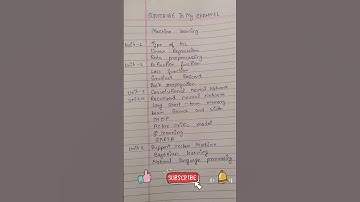 SUBSCRIBE To My CHANNEL
Machine learning
Unit-1 Type of ML
Linear Regression
Data preprocessing
Unit-2 Activation function
Loss function
Gradient Descent
Back propagation
Unit-3 Convolutional neural Network
Unit-4 Recurrent neural network
Long short-term memory
beam search and width
MDP
Actor critic model
Q learning
SARSA
Unit-5 Support vector Machine
Bayesian learning
Natural language processing
SUBSCRIBE